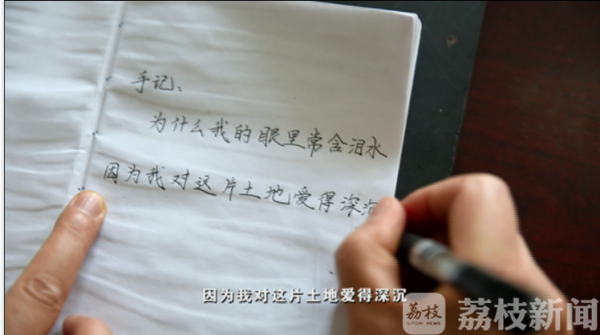 手记、
为什么我的眼里常含泪水
因为我对这片土地爱得深沉
因为我对这片土地爱得深沉
荔枝
LITCHI NEWS
荔枝新闻